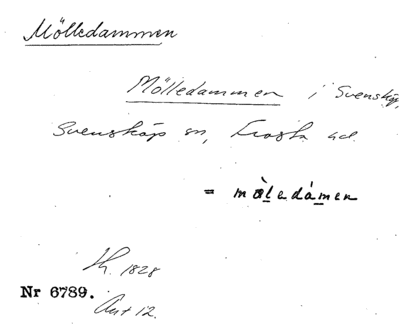 Mölledammen
Mölledammen i Svensköp,
Svensköps sn, Frosta hd.
= mò̀ledámen
1828
Nr 6789.
Ant 12.